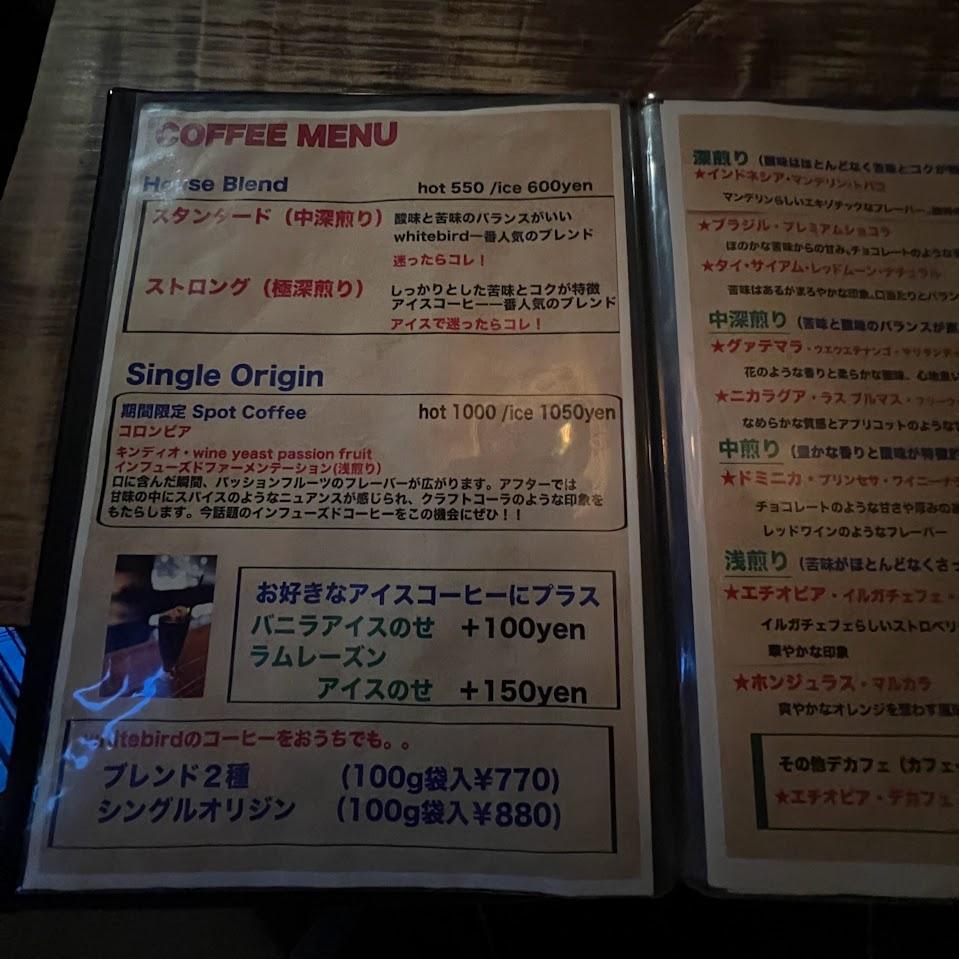 COFFEE MENU
House Blend hot 550 /ice 600yen
スタンダード（中深煎り） 酸味と苦味のバランスがいい
whitebird一番人気のブレンド
迷ったらコレ！
ストロング（極深煎り） しっかりとした苦味とコクが特徴
アイスコーヒー一番人気のブレンド
アイスで迷ったらコレ！
Single Origin
期間限定 Spot Coffee hot 1000 /ice 1050yen
コロンビア
キンディオ・wine yeast passion fruit
インフューズドファーメンテーション(浅煎り)
口に含んだ瞬間、パッションフルーツのフレーバーが広がります。アフターでは
甘味の中にスパイスのようなニュアンスが感じられ、クラフトコーラのような印象を
もたらします。今話題のインフューズドコーヒーをこの機会にぜひ！！
お好きなアイスコーヒーにプラス
バニラアイスのせ +100yen
ラムレーズン
アイスのせ +150yen
whitebirdのコーヒーをおうちでも。。
ブレンド２種 (100g袋入¥770)
シングルオリジン (100g袋入¥880)
深煎り（酸味はほとんどなく苦味とコクが
★インドネシア・マンデリン・トバコ
マンデリンらしいエキゾチックなフレーバー。
★ブラジル・プレミアムショコラ
ほのかな苦味からの甘み、チョコレートのような
★タイ・サイアム・レッドムーン・ナチュラル
苦味はあるがまろやかな印象。口当たりとバラン
中深煎り（苦味と酸味のバランスが
★グァテマラ・ウエウエテナンゴ・
花のような香りと柔らかな酸味、心地良い
★ニカラグア・ラス ブルマス・
なめらかな質感とアプリコットのような
中煎り（豊かな香りと酸味が特徴
★ドミニカ・プリンセサ・ワイニーナ
チョコレートのような甘さや厚みの
レッドワインのようなフレーバー
浅煎り（苦味がほとんどなくさっ
★エチオピア・イルガチェフェ・
イルガチェフェらしいストロベリ
華やかな印象
★ホンジュラス・マルカラ
爽やかなオレンジを思わす風味
その他デカフェ（カフェ
★エチオピア・デカフェ